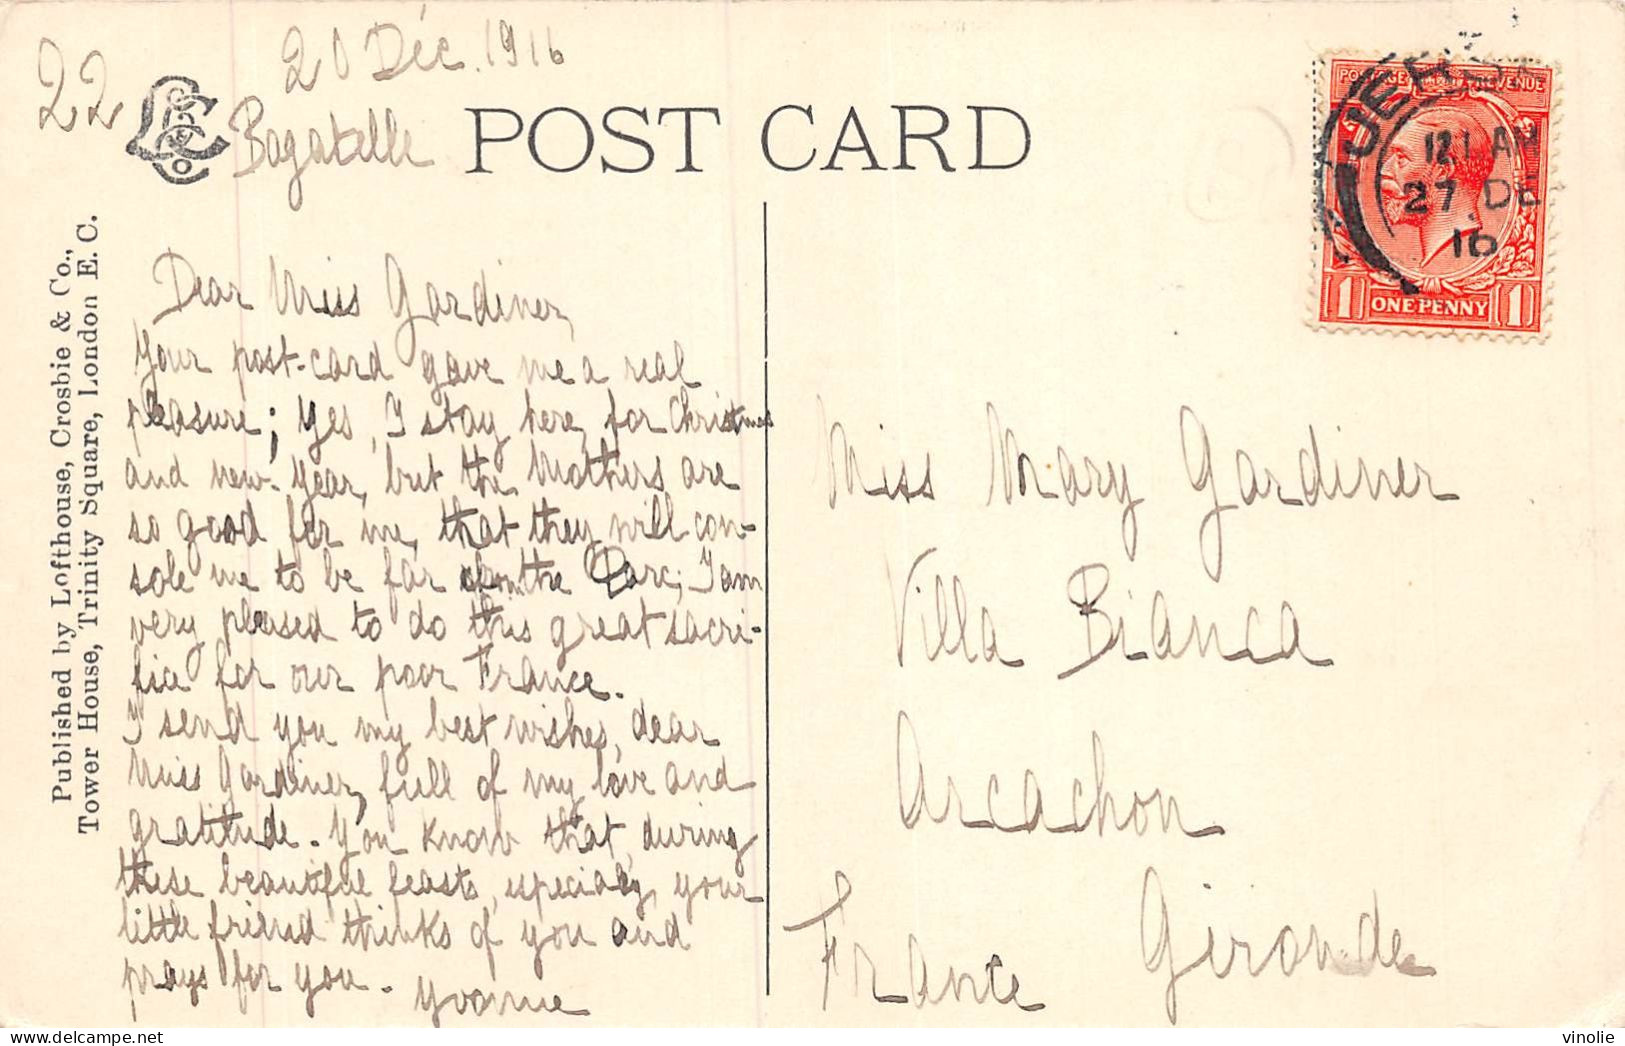 22
20 Déc. 1916
Bagatelle
POST CARD
JERS
12 1 AM
27 DE
16
POSTAGE REVENUE
1 ONE PENNY 1
Published by Lofthouse, Crosbie & Co.,
Tower House, Trinity Square, London E. C.
Dear Miss Gardiner,
Your post-card gave me a real
pleasure; Yes, I stay here, for Christmas
and new-Year, but the Mothers are
so good for me, that they will con-
sole me to be far from the Parc; I am
very pleased to do this great sacri-
fice for our poor France.
I send you my best wishes, dear
Miss Gardiner, full of my love and
gratitude. You know that, during
these beautiful feasts, especialy, your
little friend thinks of you and
prays for you.
Yvonne
Miss Mary Gardiner
Villa Bianca
Arcachon
Gironde
France
vinolie